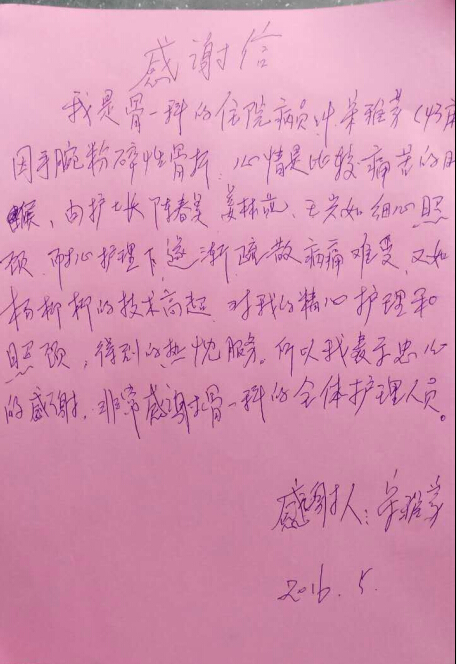 感谢信
我是骨一科的住院病员 (43床
因手腕粉碎性骨折，心情是比较痛苦的时
候，由护士长陈春 姜林 、王岁如细心照
顾，耐心护理下，逐渐疏散病痛难受，又如
杨柳柳的技术高超，对我的精心护理和
照顾，得到的热忱服务。所以我表示忠心
的感谢，非常感谢骨一科的全体护理人员。
感谢人：
2016.5.